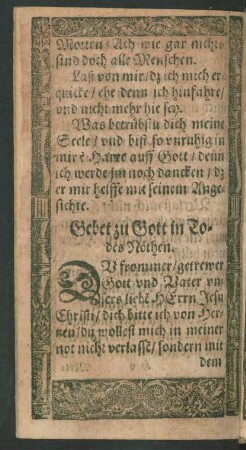 Motten / Ach wie gar nichts
sind doch alle Menschen.
Laß von mir / dz ich mich er-
quicke / ehe denn ich hinfahre /
vnd nicht mehr hie sey.
Was betrübstu dich meine
Seele / vnd bist so vnruhig in
mir? Harre auff Gott / denn
ich werde jm noch dancken / dz
er mir helffe mit seinem Ange-
sichte.
Gebet zu Gott in To-
des Nöthen.
DV frommer / getrewer
Gott vnd Vater vn-
sers liebē HErrn Jesu
Christi / dich bitte ich von Her-
tzen / du wollest mich in meiner
not nicht verlassē / sondern mit
dem